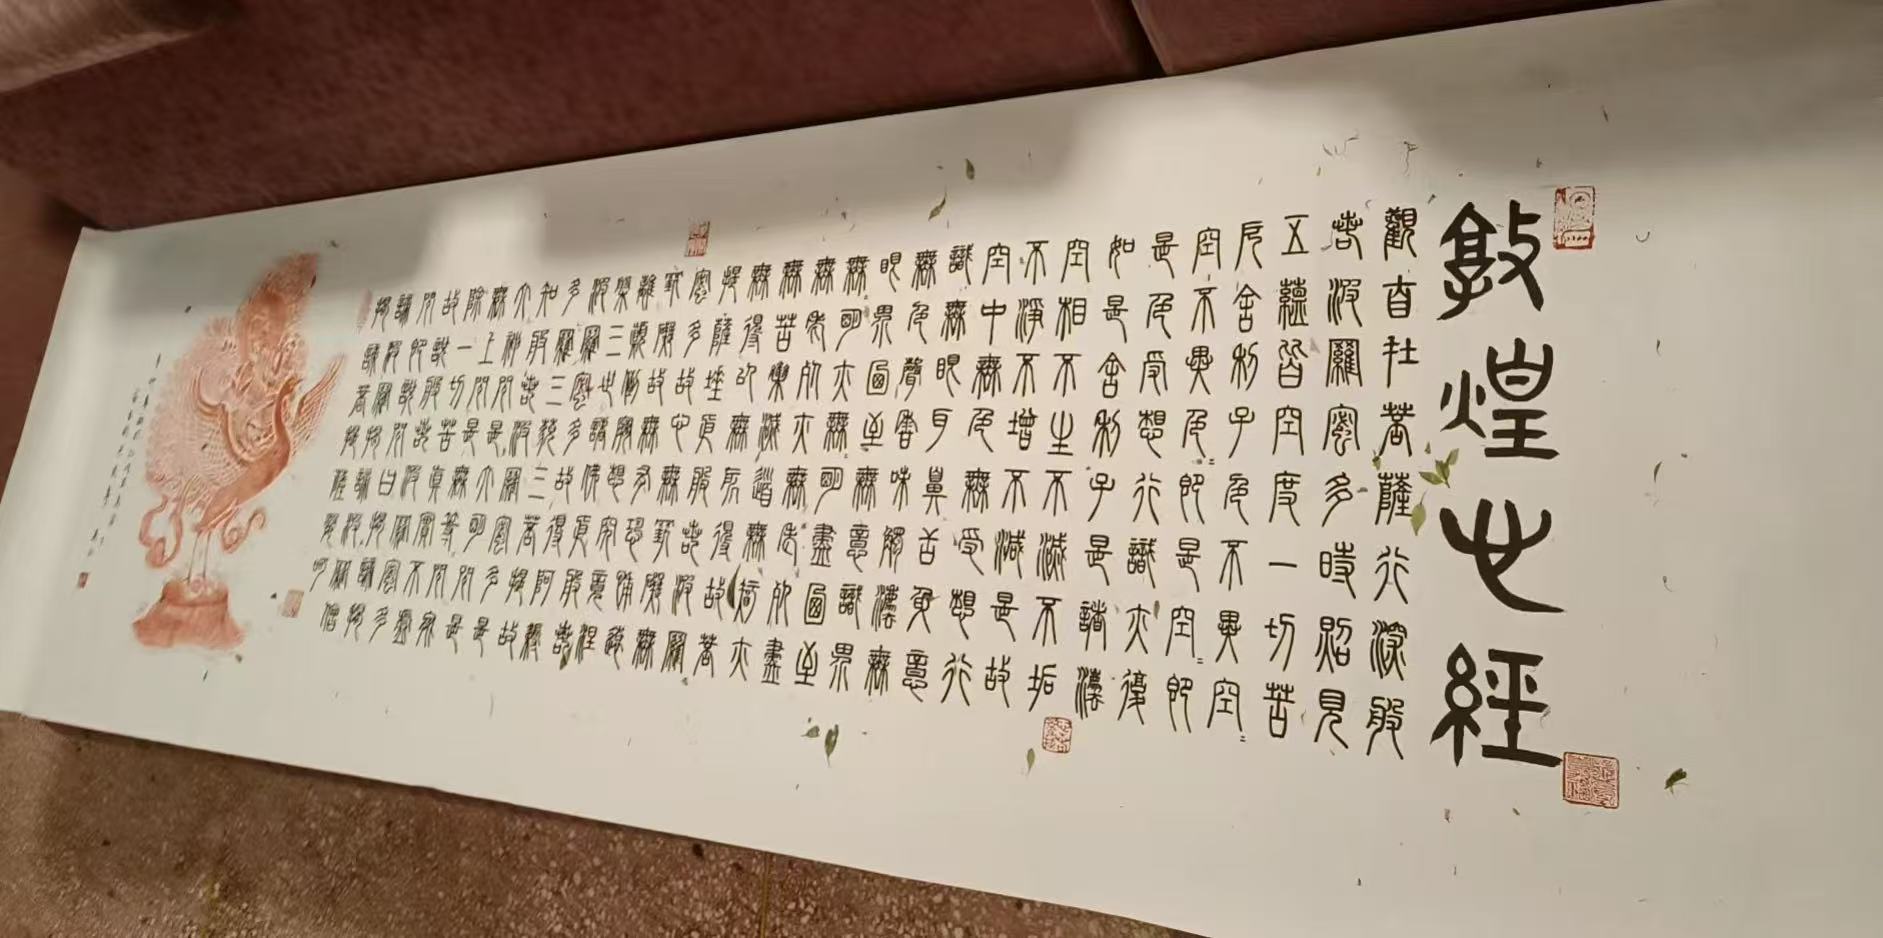 敦煌心經
觀自在菩薩行深般
若波羅蜜多時照見
五蘊皆空度一切苦
厄舍利子色不異空=
不異色=即是空=即
是色受想行識亦復
如是舍利子是諸法
空相不生不滅不垢
不淨不增不減是故
空中無色無受想行
識無眼耳鼻舌身意
無色聲香味觸法無
眼界乃至無意識界
無明亦無明盡乃至
無老死亦無老死盡
無苦集滅道無智亦
無得以無所得故菩
提薩埵依般若波羅
蜜多故心無罣礙無
罣礙故無有恐怖遠
離顛倒夢想究竟涅
槃三世諸佛依般若
波羅蜜多故得阿耨
多羅三藐三菩提故
知般若波羅蜜多是
大神咒是大明咒是
無上咒是無等咒能
除一切苦真實不虛
故說般若波羅蜜多
咒即說咒曰揭諦揭
諦波羅揭諦波羅僧
揭諦菩提薩婆訶